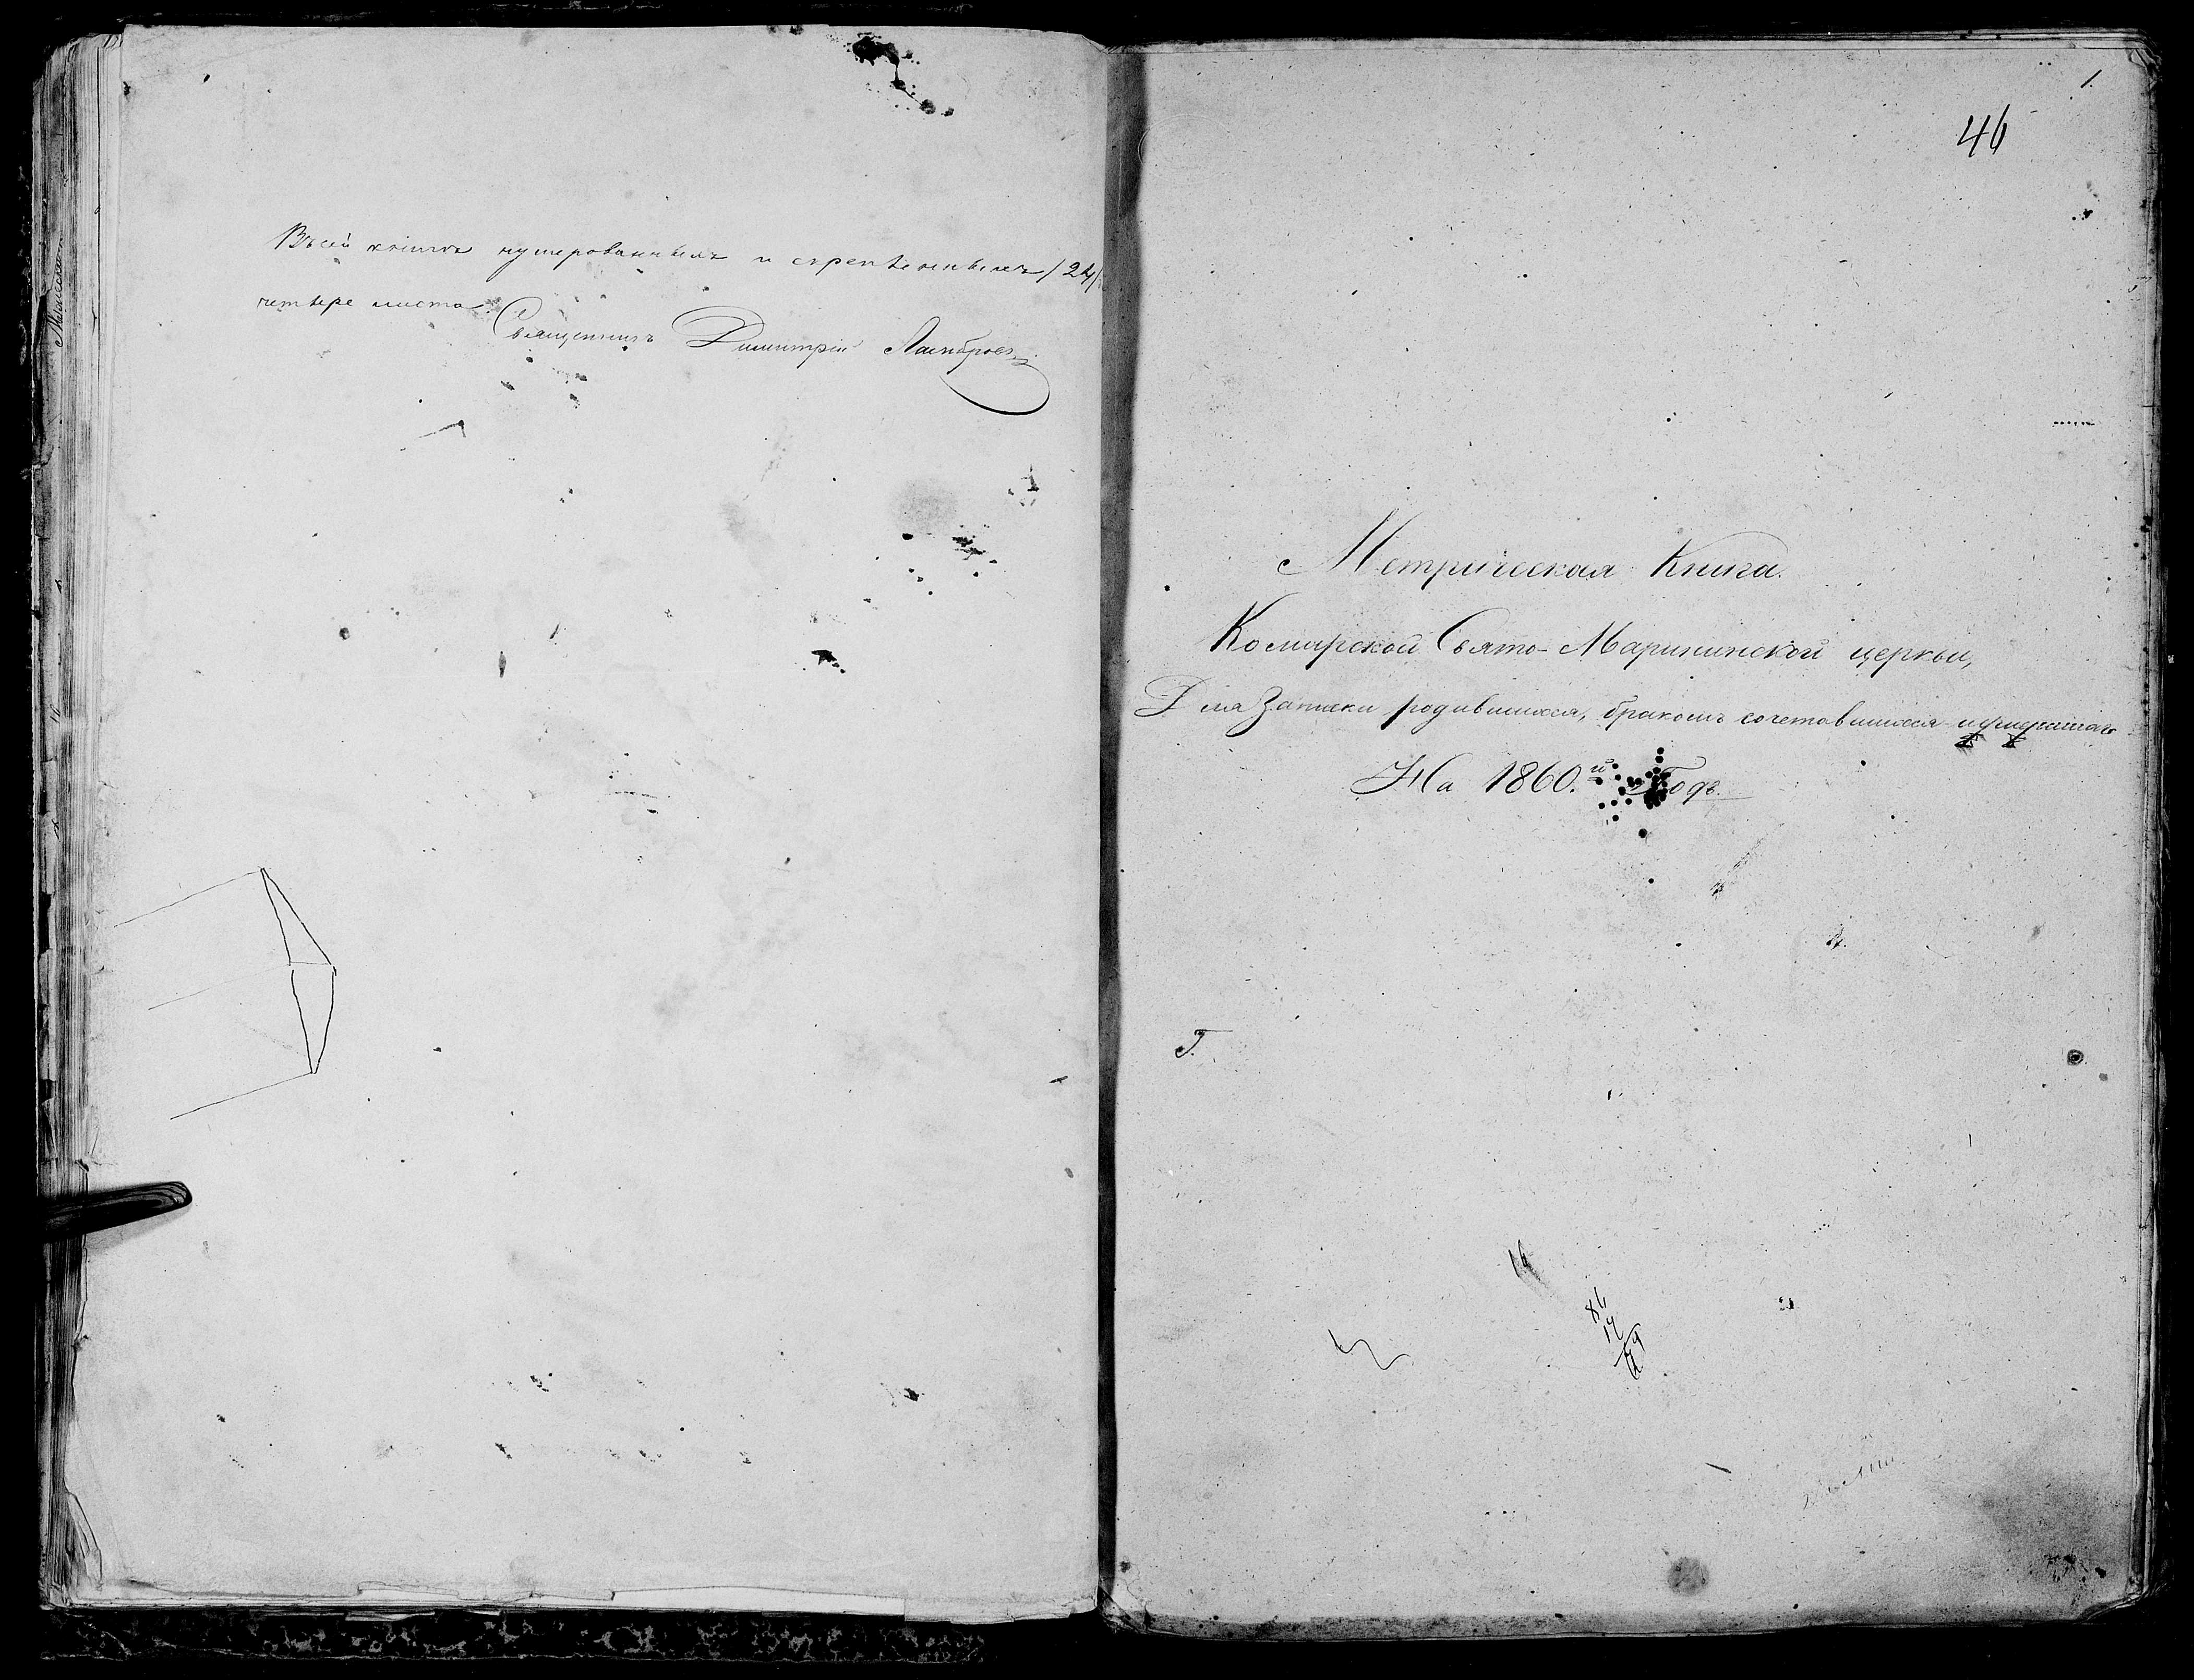 Въ сей книге нумерованныхъ и скрепленныхъ /24/
четыре листа.
Священникъ Димитрій
1.
46
Метрическая Книга.
Комарской Свято-Марининской церкви,
Для Записки родившихся, бракомъ сочетавшихся и умершихъ
На 1860.й Годъ.
16